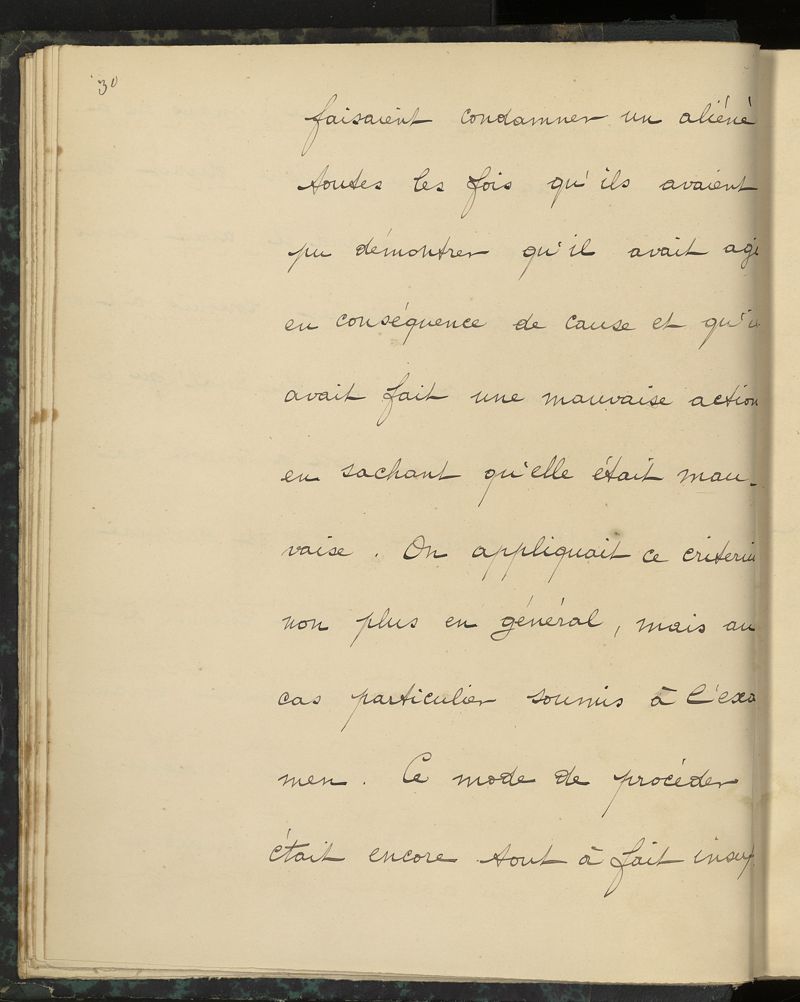 30
faisaient condamner un aliéné
toutes les fois qu'ils avaient
pu démontrer qu'il avait agi
en conséquence de cause et qu'il
avait fait une mauvaise action
en sachant qu'elle était mau-
vaise. On appliquait ce criterium
non plus en général, mais au
cas particulier soumis à l'exa
men. Ce mode de procéder
était encore tout à fait insuf